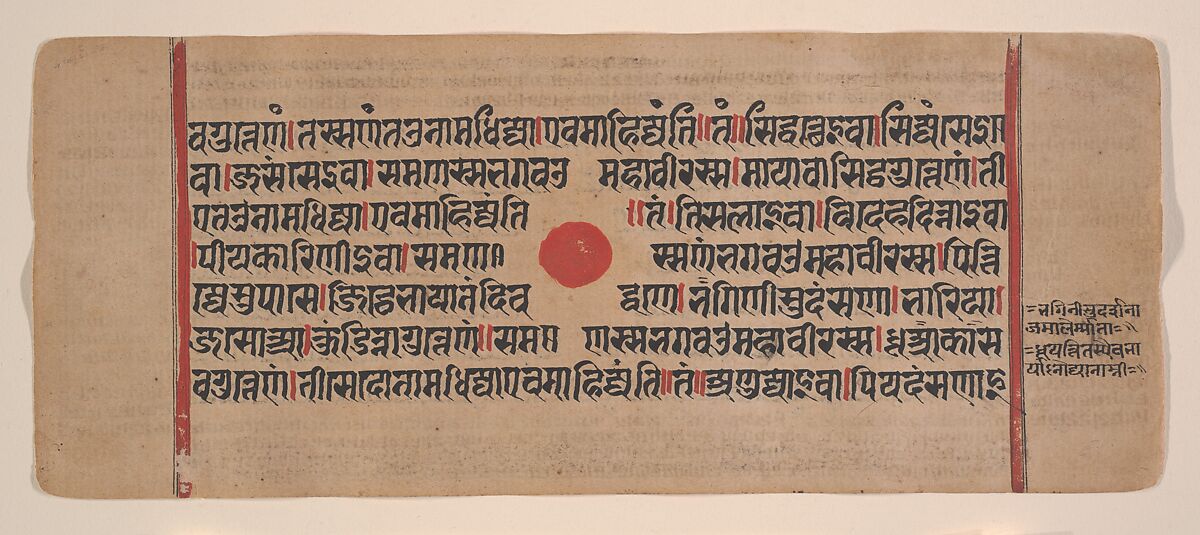 वगुत्तेणं।तस्सणंतउनामधिज्जा।एवमाहिज्जंति॥तं॥सिद्धत्थेइवा।सिज्जंसेइ
वा।जसंसेइवा।समणस्सभगवउ महावीरस्स।मायावासिट्ठगुत्तेणं।ती
एतउनामधिज्जा।एवमाहिज्जंति ॥तं।तिसलाइवा।विदेहदिन्नाइवा
।पीयकारिणीइवा।समण स्सणंभगवउमहावीरस्स।पित्ति
ज्जेसुपासे।जिट्ठेभायानंदिव द्धणे।भगिणीसुदंसणा।भारिया
जसोआ।कोडिन्नागुत्तेणं॥सम णस्सभगवउमहावीरस्स।धूआकास
वगुत्तेणं।तीसेदोनामधिज्जाएवमाहिज्जंति॥तं॥अणुज्जाइवा।पियदंसणाइ
भगिनीसुदर्शना